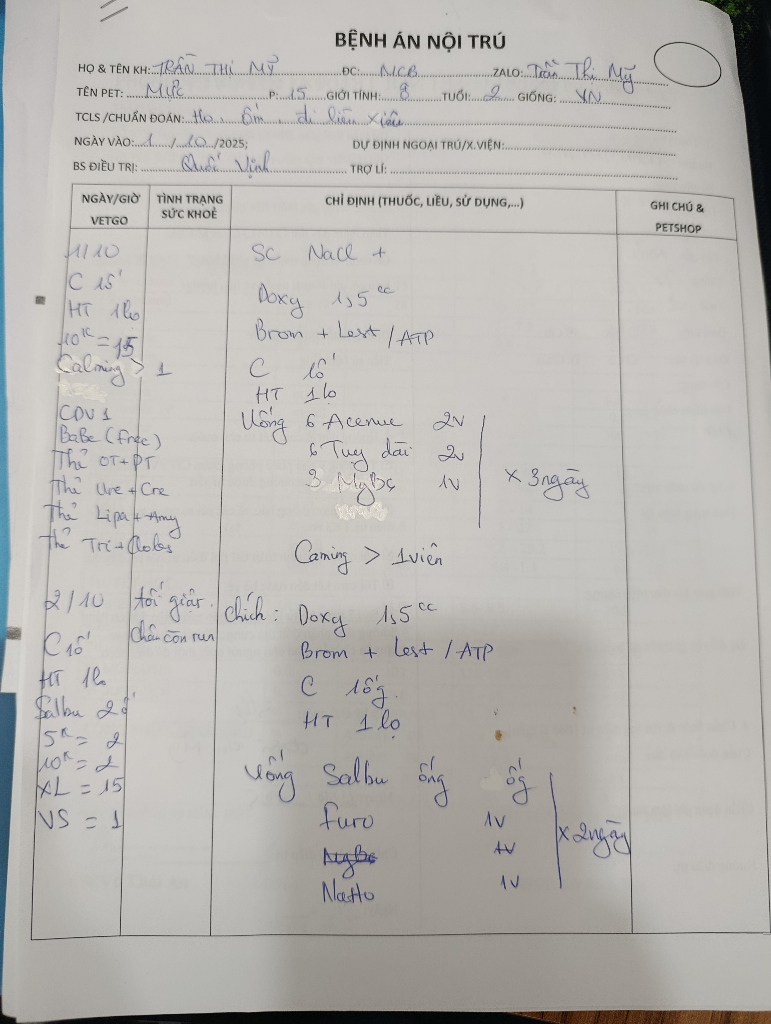 BỆNH ÁN NỘI TRÚ
HỌ & TÊN KH: TRẦN THỊ MỸ ĐC: MCB ZALO: Trần Thị Mỹ
TÊN PET: Mực P: 15 GIỚI TÍNH: TUỔI: 2 GIỐNG: VN
TCLS /CHUẨN ĐOÁN: Ho, ốm, đi liêu xiêu
NGÀY VÀO: 1 / 10 /2025; DỰ ĐỊNH NGOẠI TRÚ/X.VIỆN:
BS ĐIỀU TRỊ: Quốc Vịnh TRỢ LÍ:
NGÀY/GIỜ VETGO TÌNH TRẠNG SỨC KHOẺ CHỈ ĐỊNH (THUỐC, LIỀU, SỬ DỤNG,...) GHI CHÚ & PETSHOP
1/10 SC Nacl +
C 1ố
HT 1lo
10K = 15
Calming > 1
CDV 1
BaBe (free)
Thẻ OT + PT
Thẻ Ure + Cre
Thẻ Lipa + Amy
Thẻ Tri + Choles
Doxy 1,5 cc
Brom + Lest / ATP
C 1ố
HT 1 lo
Uống 6 Acenue 2v
6 Tuy dài 2v
3 MgB6 1v
x 3 ngày
Caming > 1 viên
2/10 tối giật. chân còn run
C 1ố
HT 1lo
Salbu 2ố
5K = 2
10K = 2
XL = 15
VS = 1
Chích: Doxy 1,5 cc
Brom + Lest / ATP
C 1ốg.
HT 1 lọ
Uống Salbu ống ốg
Furo 1V
MgB6 1V
Natto 1V
x 2 ngày